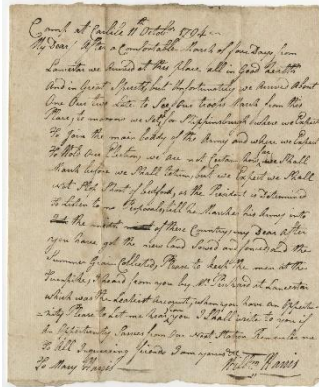 Camp at Carlisle 11th Octobr 1794
My Dear, After a Comfortable March of four Days from
Lancaster we arrived at this place, all in Good health
And in Great Spirits, but Unfortunately we arrive About
One Our two Late to See Our troops March from this
Place, tomorrow we Set for Shippinsburgh where we Expect
To Join the main body of the Army and where we Expect
To Hold Our Election, we are not Certain how we Shall
March before we Shall Return, but we Expect we Shall
not Stop Short of Bedford, as the President is Determined
to Listen to no Proposals till he Marches his Army into
of these Country, my Dear after
you have got the new land Sowed and the
Summer Grain Collected, Please to keep the men at the
Turnpike, I heard from you by Mr. at Lancaster
which was the account, when you have an Opportu
-nity Please to Let me hear from you I shall write to you if
An Opportunity Serves from Our Next Station, Remember me
To All Inquiring friends I am yours
To Mary Harris Willm Harris